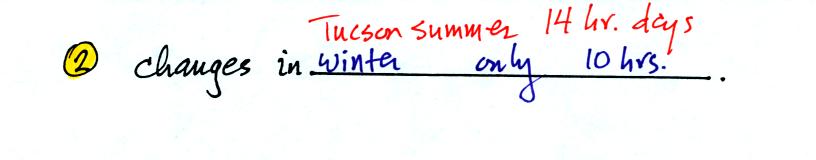 Tucson summer 14 hr. days
② changes in winter only 10 hrs.